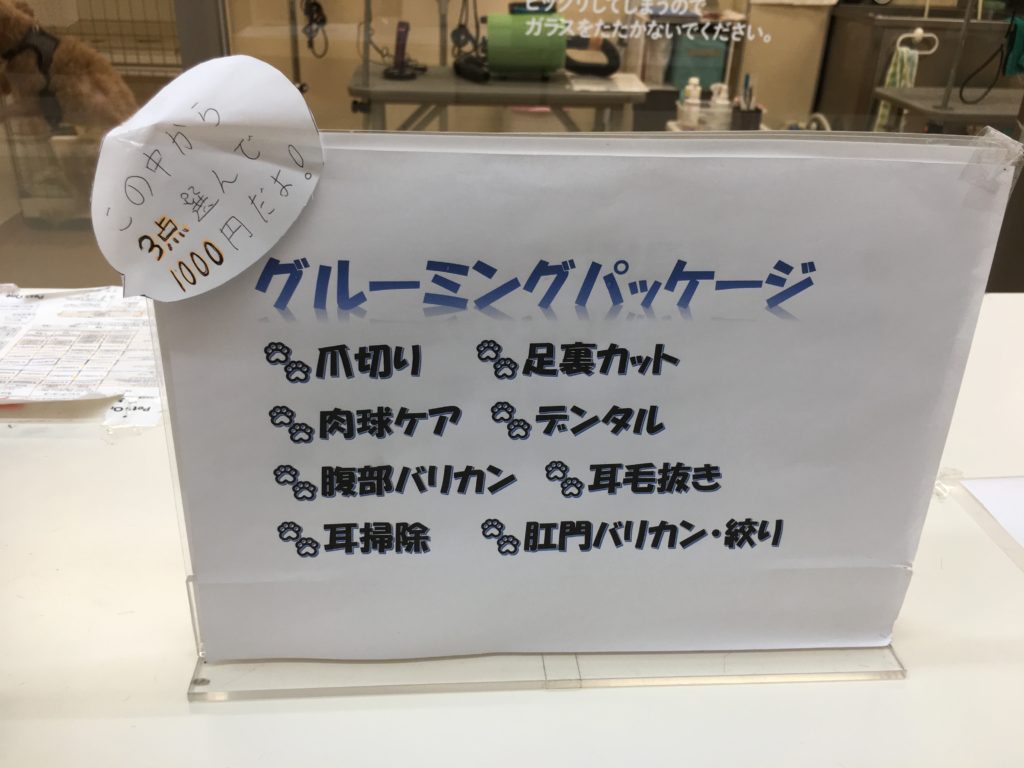 ビックリしてしまうので
ガラスをたたかないでください。
この中から
3点 選んで
1000円だよ。
グルーミングパッケージ
爪切り 足裏カット
肉球ケア デンタル
腹部バリカン 耳毛抜き
耳掃除 肛門バリカン・絞り